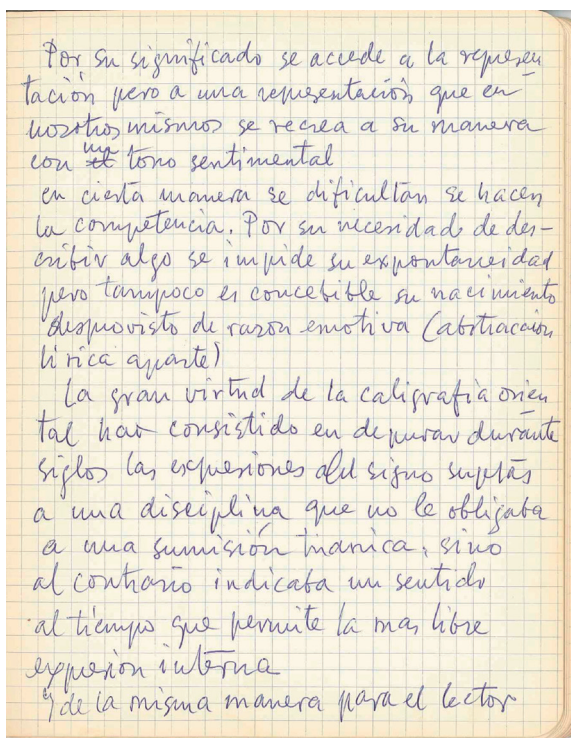 Por su significado se accede a la represen
tación pero a una representación que en
nosotros mismos se recrea a su manera
con un tono sentimental
en cierta manera se dificultan se hacen
la competencia. Por su necesidad de des-
cribir algo se impide su expontaneidad
pero tampoco es concebible su nacimiento
desprovisto de razon emotiva (abstracción
lirica aparte)
La gran virtud de la caligrafia orien
tal han consistido en depurar durante
siglos las expresiones del signo
a una disciplina que no le obligaba
a una sumisión tiranica, sino
al contrario indicaba un sentido
al tiempo que permite la mas libre
expresión interna
y de la misma manera para el lector